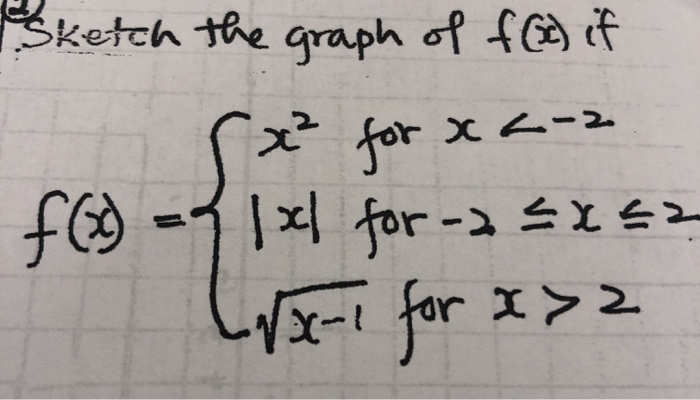 2) Sketch the graph of f(x) if
x² for x < -2
f(x) = { |x| for -2 ≤ x ≤ 2
√x-1 for x > 2